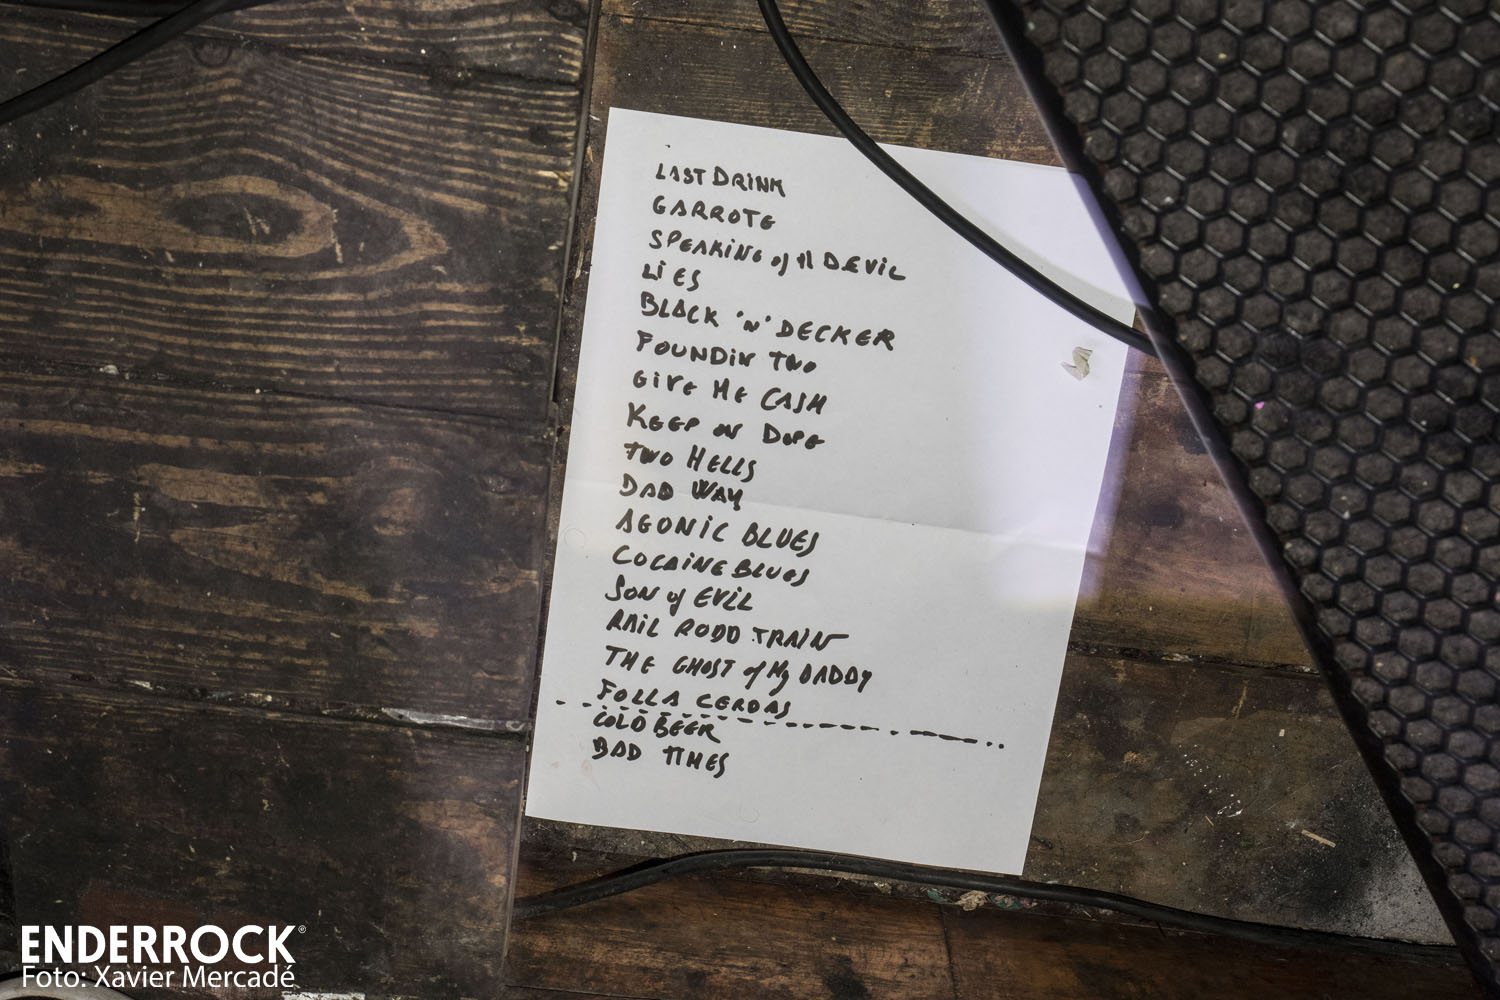 LAST DRINK
GARROTE
SPEAKING of tl DEVIL
LIES
BLACK 'N' DECKER
FOUNDIN TWO
GIVE ME CASH
KEEP ON DOPE
TWO HELLS
DAD WAY
AGONIC BLUES
COCAINE BLUES
SON of EVIL
RAIL ROAD TRAIN
THE GHOST of My DADDY
FOLLA CERDAS
COLD BEER
BAD TIMES
ENDERROCK®
Foto: Xavier Mercadé